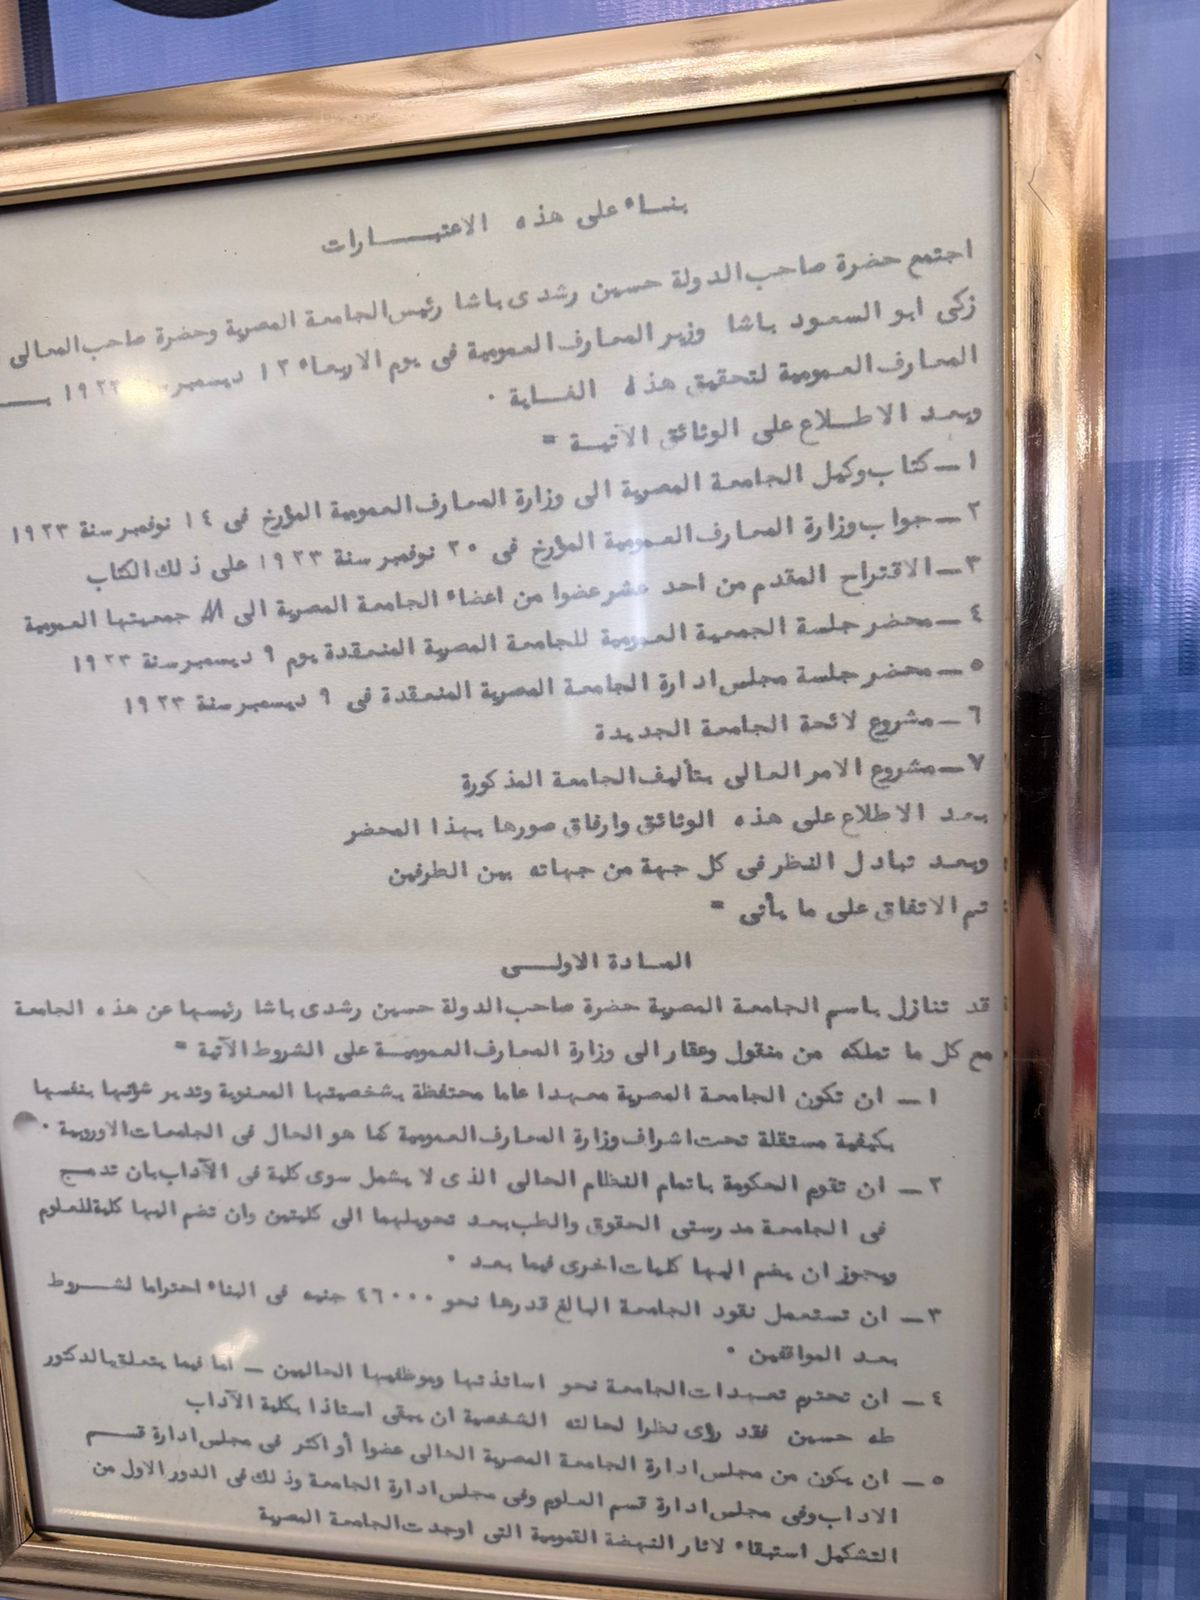 بناء على هذه الاعتبارات
اجتمع حضرة صاحب الدولة حسين رشدى باشا رئيس الجامعة المصرية وحضرة صاحب المعالى
زكى ابو السعود باشا وزير المعارف العمومية فى يوم الاربعاء ١٢ ديسمبر ١٩٢٣
المعارف العمومية لتحقيق هذه الغاية ٠
وبعد الاطلاع على الوثائق الآتية =
١ — كتاب وكيل الجامعة المصرية الى وزارة المعارف العمومية المؤرخ فى ١٤ نوفمبر سنة ١٩٢٣
٢ — جواب وزارة المعارف العمومية المؤرخ فى ٢٥ نوفمبر سنة ١٩٢٣ على ذلك الكتاب
٣ — الاقتراح المقدم من احد عشر عضوا من اعضاء الجامعة المصرية الى جمعيتها العمومية
٤ — محضر جلسة الجمعية العمومية للجامعة المصرية المنعقدة يوم ٩ ديسمبر سنة ١٩٢٣
٥ — محضر جلسة مجلس ادارة الجامعة المصرية المنعقدة فى ٩ ديسمبر سنة ١٩٢٣
٦ — مشروع لائحة الجامعة الجديدة
٧ — مشروع الامر العالى بتأليف الجامعة المذكورة
بعد الاطلاع على هذه الوثائق وارفاق صورها بهذا المحضر
وبعد تبادل النظر فى كل جهة من جهاته بين الطرفين
تم الاتفاق على ما يأتى =
المادة الاولى
قد تنازل باسم الجامعة المصرية حضرة صاحب الدولة حسين رشدى باشا رئيسها عن هذه الجامعة
مع كل ما تملكه من منقول وعقار الى وزارة المعارف العمومية على الشروط الآتية =
١ — ان تكون الجامعة المصرية معهدا عاما محتفظة بشخصيتها المعنوية وتدير شؤنها بنفسها
بكيفية مستقلة تحت اشراف وزارة المعارف العمومية كما هو الحال فى الجامعات الاوروبية ٠
٢ — ان تقوم الحكومة باتمام النظام الحالى الذى لا يشمل سوى كلية فى الآداب بان تدمج
فى الجامعة مدرستى الحقوق والطب بعد تحويلهما الى كليتين وان تضم اليها كلية للعلوم
ويجوز ان يضم اليها كليات اخرى فيما بعد ٠
٣ — ان تستعمل نقود الجامعة البالغ قدرها نحو ٤٦٠٠٠ جنيه فى البناء احتراما لشروط
بعد المواقفين ٠
٤ — ان تحترم تعهدات الجامعة نحو اساتذتها وموظفيها الحاليين — اما فيما يتعلق بالدكتور
طه حسين فقد رؤى نظرا لحالته الشخصية ان يبقى استاذا بكلية الآداب
٥ — ان يكون من مجلس ادارة الجامعة المصرية الحالى عضوا أو اكثر فى مجلس ادارة قسم
الاداب وفى مجلس ادارة قسم العلوم وفى مجلس ادارة الجامعة وذلك فى الدور الاول من
التشكيل استبقاء لاثار النهضة القومية التى اوجدت الجامعة المصرية